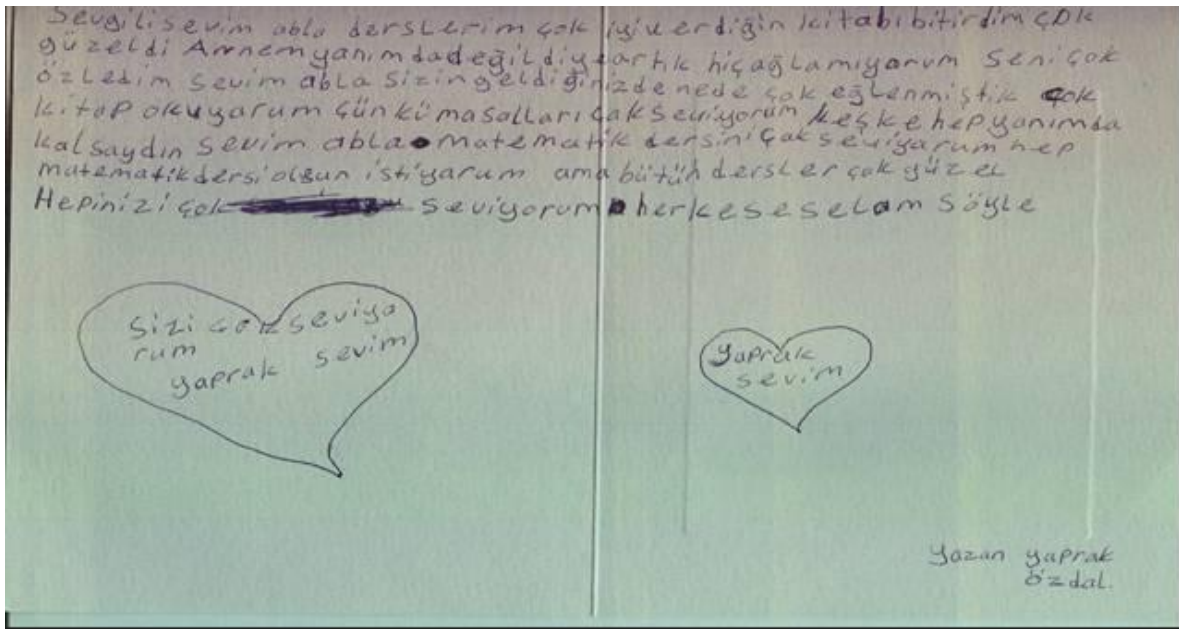 Sevgili sevim abla derslerim çok iyi verdiğin kitabı bitirdim çok
güzeldi Annem yanımda değildi artık hiç ağlamıyorum seni çok
özledim sevim abla sizin geldiğinizde nede çok eğlenmiştik çok
kitap okuyarum çünkü masalları çok seviyorum keşke hep yanımda
kalsaydın sevim abla matematik dersini çok seviyarum hep
matematik dersi olsun istiyarum ama bütün dersler çok güzel
Hepinizi çok seviyorum herkese selam söyle
sizi çok seviyo
rum
yaprak sevim
yaprak
sevim
yazan yaprak
özdal.